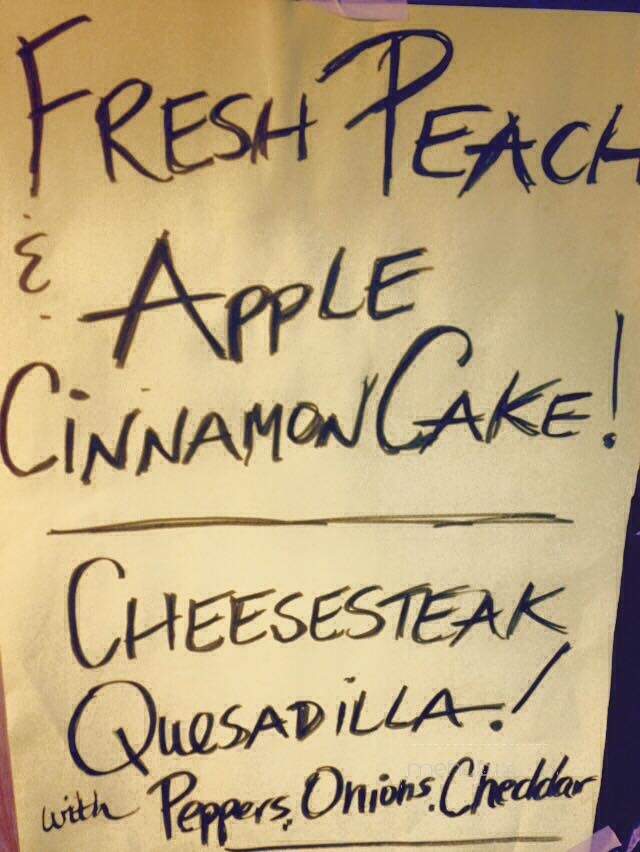 FRESH PEACH
& APPLE
CINNAMON CAKE!
CHEESESTEAK
QUESADILLA!
with Peppers, Onions, Cheddar